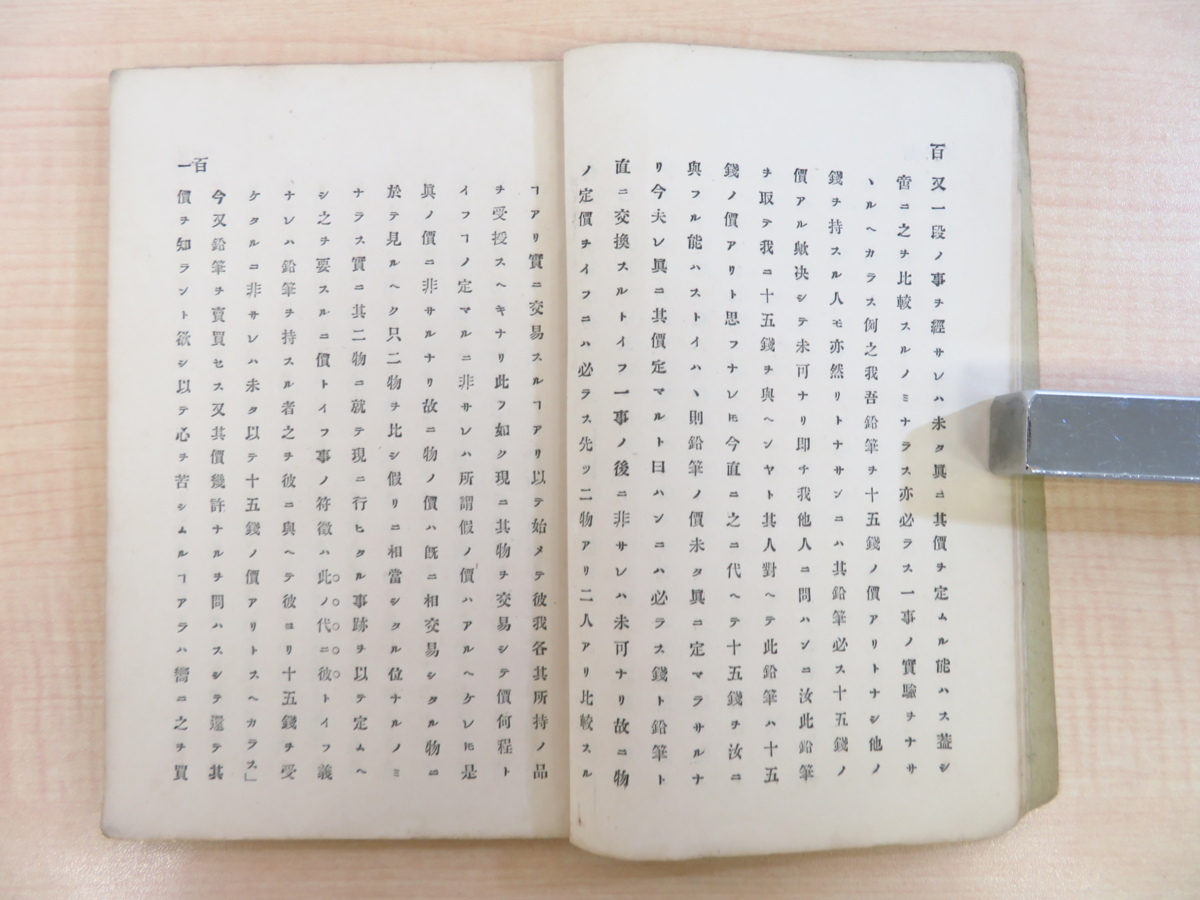 百
又一段ノ事ヲ經サレハ未タ眞ニ其價ヲ定ムル能ハス蓋シ
啻ニ之ヲ比較スルノミナラス亦必ラス一事ノ實驗ヲナサ
ヽルヘカラス例之我吾鉛筆ヲ十五錢ノ價アリトナシ他ノ
錢ヲ持スル人モ亦然リトナサンニハ其鉛筆必ス十五錢ノ
價アル歟决シテ未可ナリ即チ我他人ニ問ハンニ汝此鉛筆
ヲ取テ我ニ十五錢ヲ與ヘンヤト其人對ヘテ此鉛筆ハ十五
錢ノ價アリト思フナレ𪜈今直ニ之ニ代ヘテ十五錢ヲ汝ニ
與フル能ハストイハヽ則鉛筆ノ價未タ眞ニ定マラサルナ
リ今夫レ眞ニ其價定マルト曰ハンニハ必ラス錢ト鉛筆ト
直ニ交換スルトイフ一事ノ後ニ非サレハ未可ナリ故ニ物
ノ定價ヲイフニハ必ラス先ツ二物アリ二人アリ比較スル
ヿアリ實ニ交易スルヿアリ以テ始メテ彼我各其所持ノ品
ヲ受授スヘキナリ此フ如ク現ニ其物ヲ交易シテ價何程ト
イフヿノ定マルニ非サレハ所謂假ノ價ハアルヘケレ𪜈是
眞ノ價ニ非サルナリ故ニ物ノ價ハ旣ニ相交易シタル物ニ
於テ見ルヘク只二物ヲ比シ假リニ相當シタル位ナルノミ
ナラス實ニ其二物ニ就テ現ニ行ヒタル事跡ヲ以テ定ムヘ
シ之ヲ要スルニ價トイフ事ノ符徵ハ此ノ代ニ彼トイフ義
ナレハ鉛筆ヲ持スル者之ヲ彼ニ與ヘテ彼ヨリ十五錢ヲ受
ケタルニ非サレハ未タ以テ十五錢ノ價アリトスヘカラス」
今又鉛筆ヲ賣買セス又其價幾許ナルヲ問ハスシテ還テ其
價ヲ知ラント欲シ以テ心ヲ苦シムルヿアラハ嚮ニ之ヲ買
百一